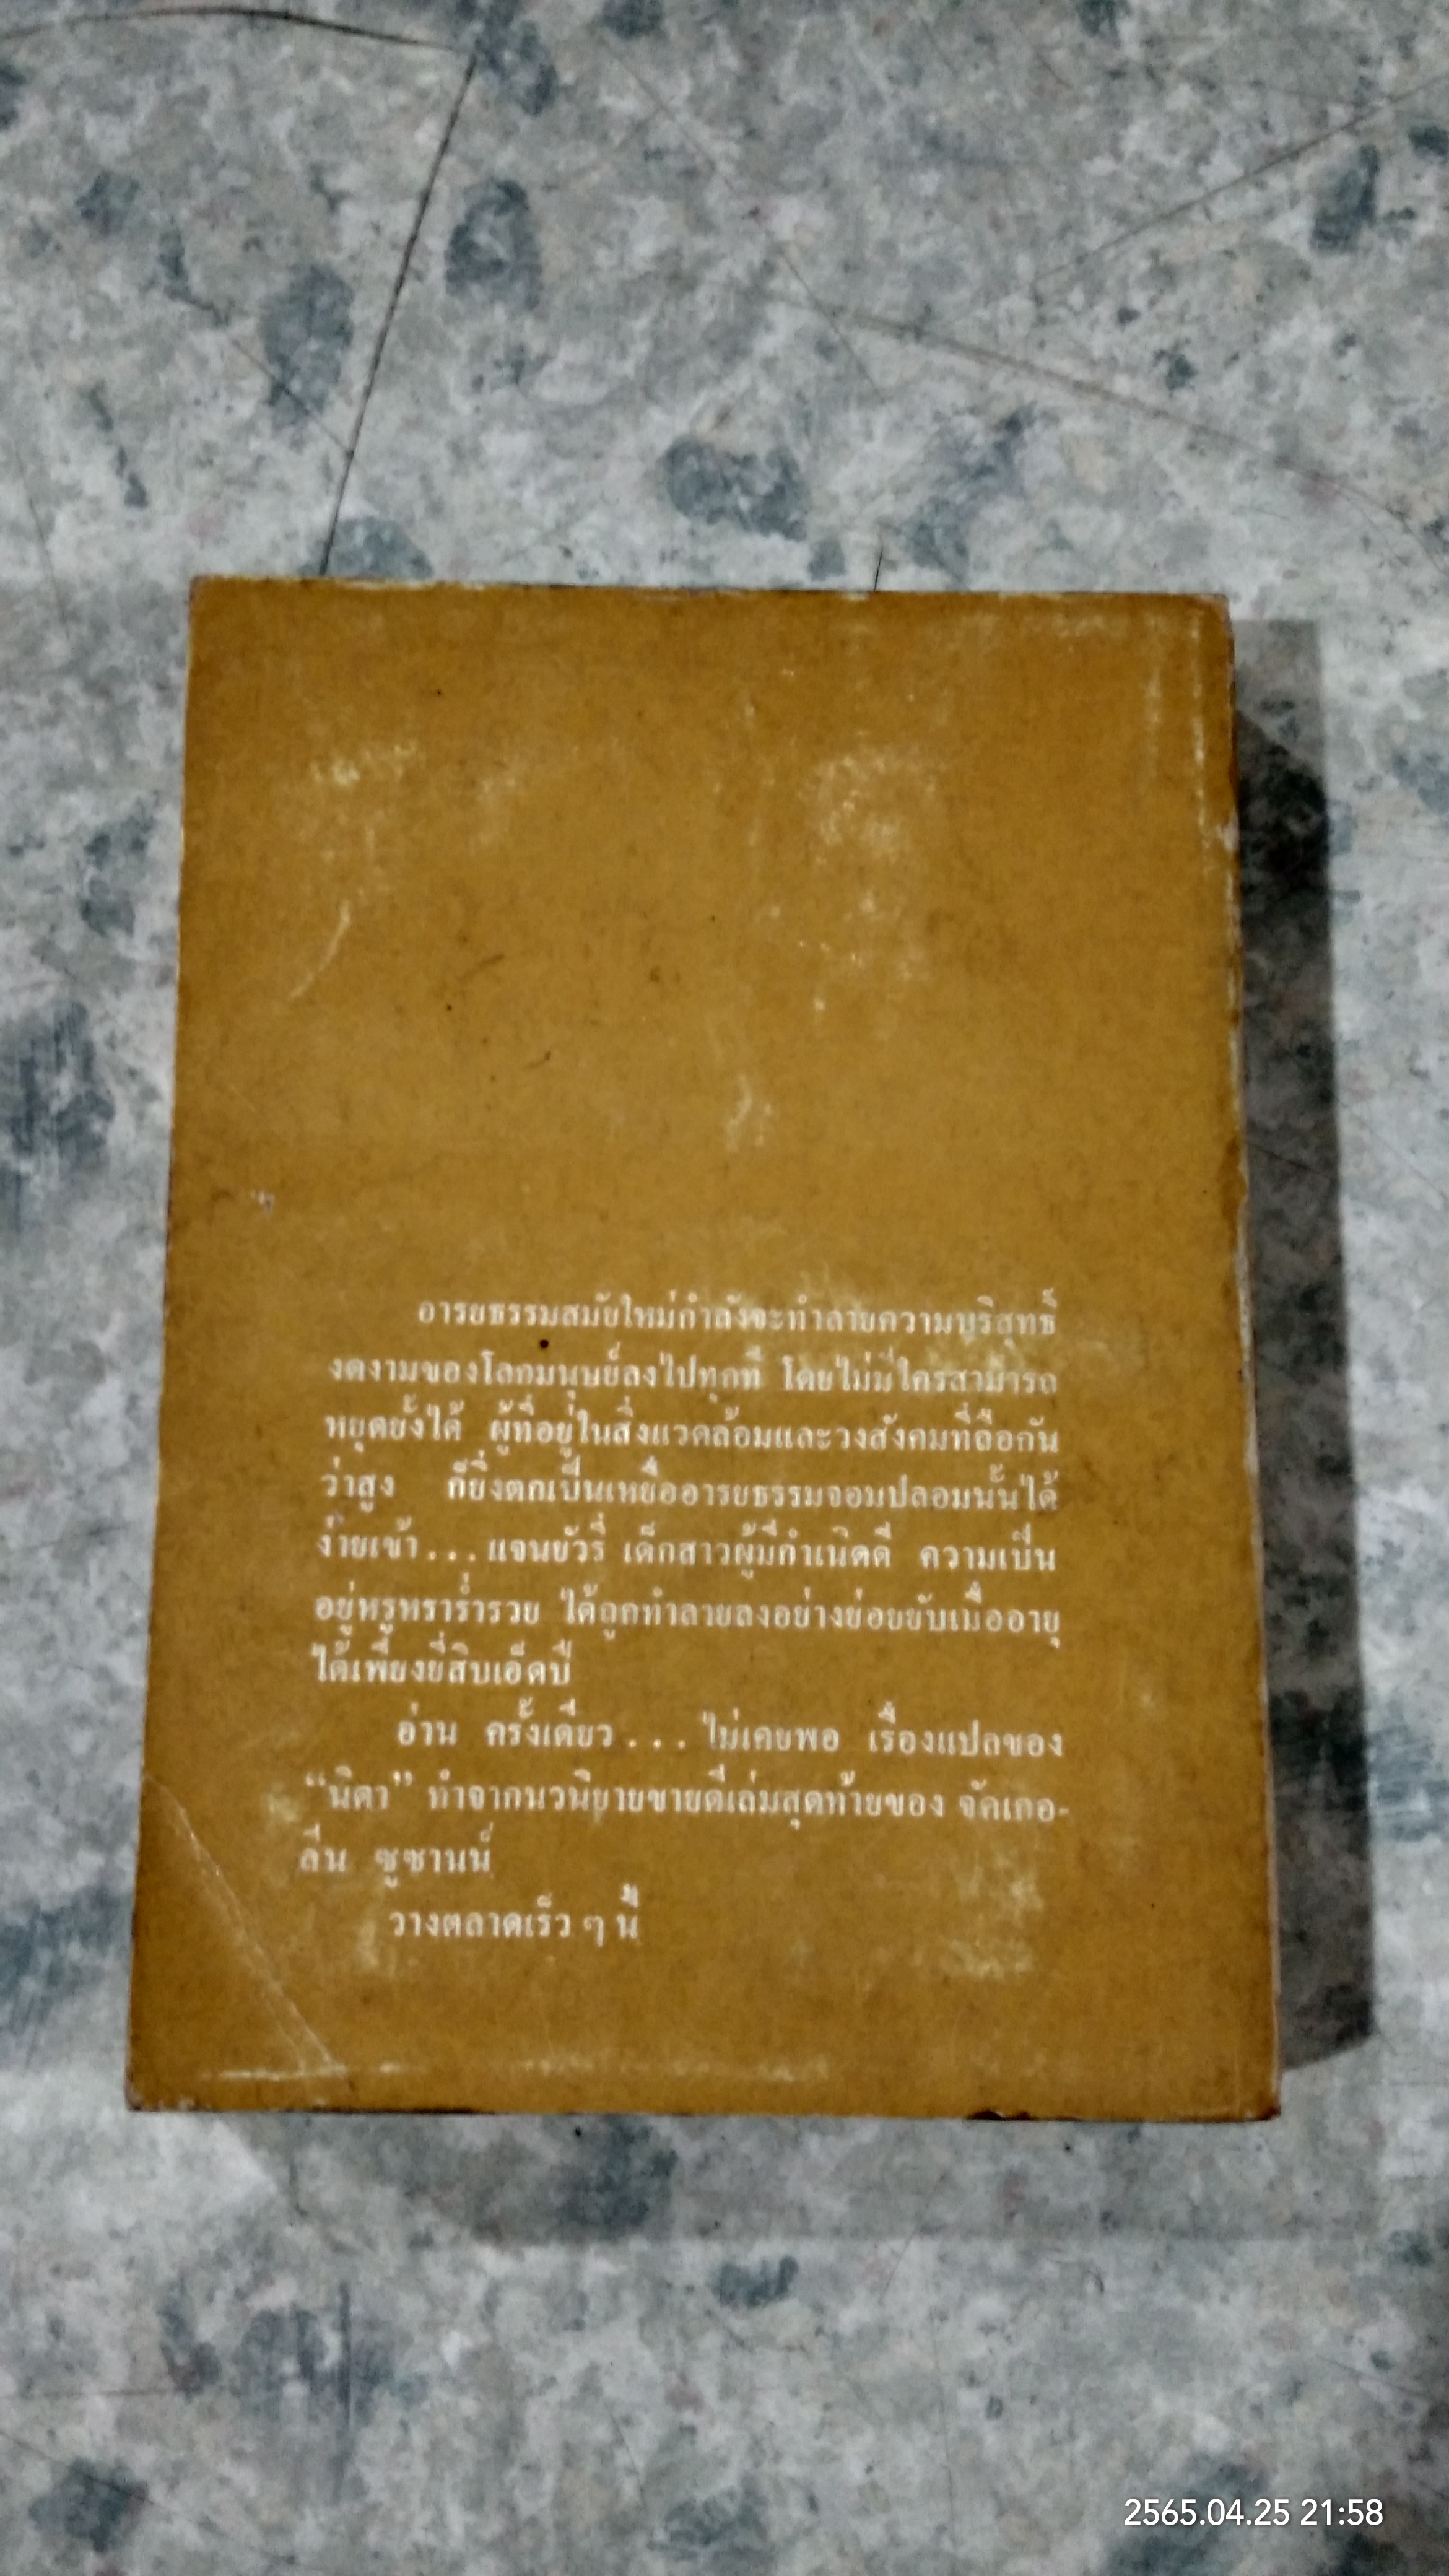 อารยธรรมสมัยใหม่กำลังจะทำลายความบริสุทธิ์
งดงามของโลกมนุษย์ลงไปทุกที โดยไม่มีใครสามารถ
หยุดยั้งได้ ผู้ที่อยู่ในสิ่งแวดล้อมและวงสังคมที่ถือกัน
ว่าสูง ก็ยิ่งตกเป็นเหยื่ออารยธรรมจอมปลอมนั้นได้
ง่ายเข้า...แจนยัวรี่ เด็กสาวผู้มีกำเนิดดี ความเป็น
อยู่หรูหราร่ำรวย ได้ถูกทำลายลงอย่างย่อยยับเมื่ออายุ
ได้เพียงยี่สิบเอ็ดปี
อ่าน ครั้งเดียว...ไม่เคยพอ เรื่องแปลของ
“นิดา” ทำจากนวนิยายขายดีเล่มสุดท้ายของ จัคเกอ-
ลีน ซูซานน์
วางตลาดเร็ว ๆ นี้
2565.04.25 21:58